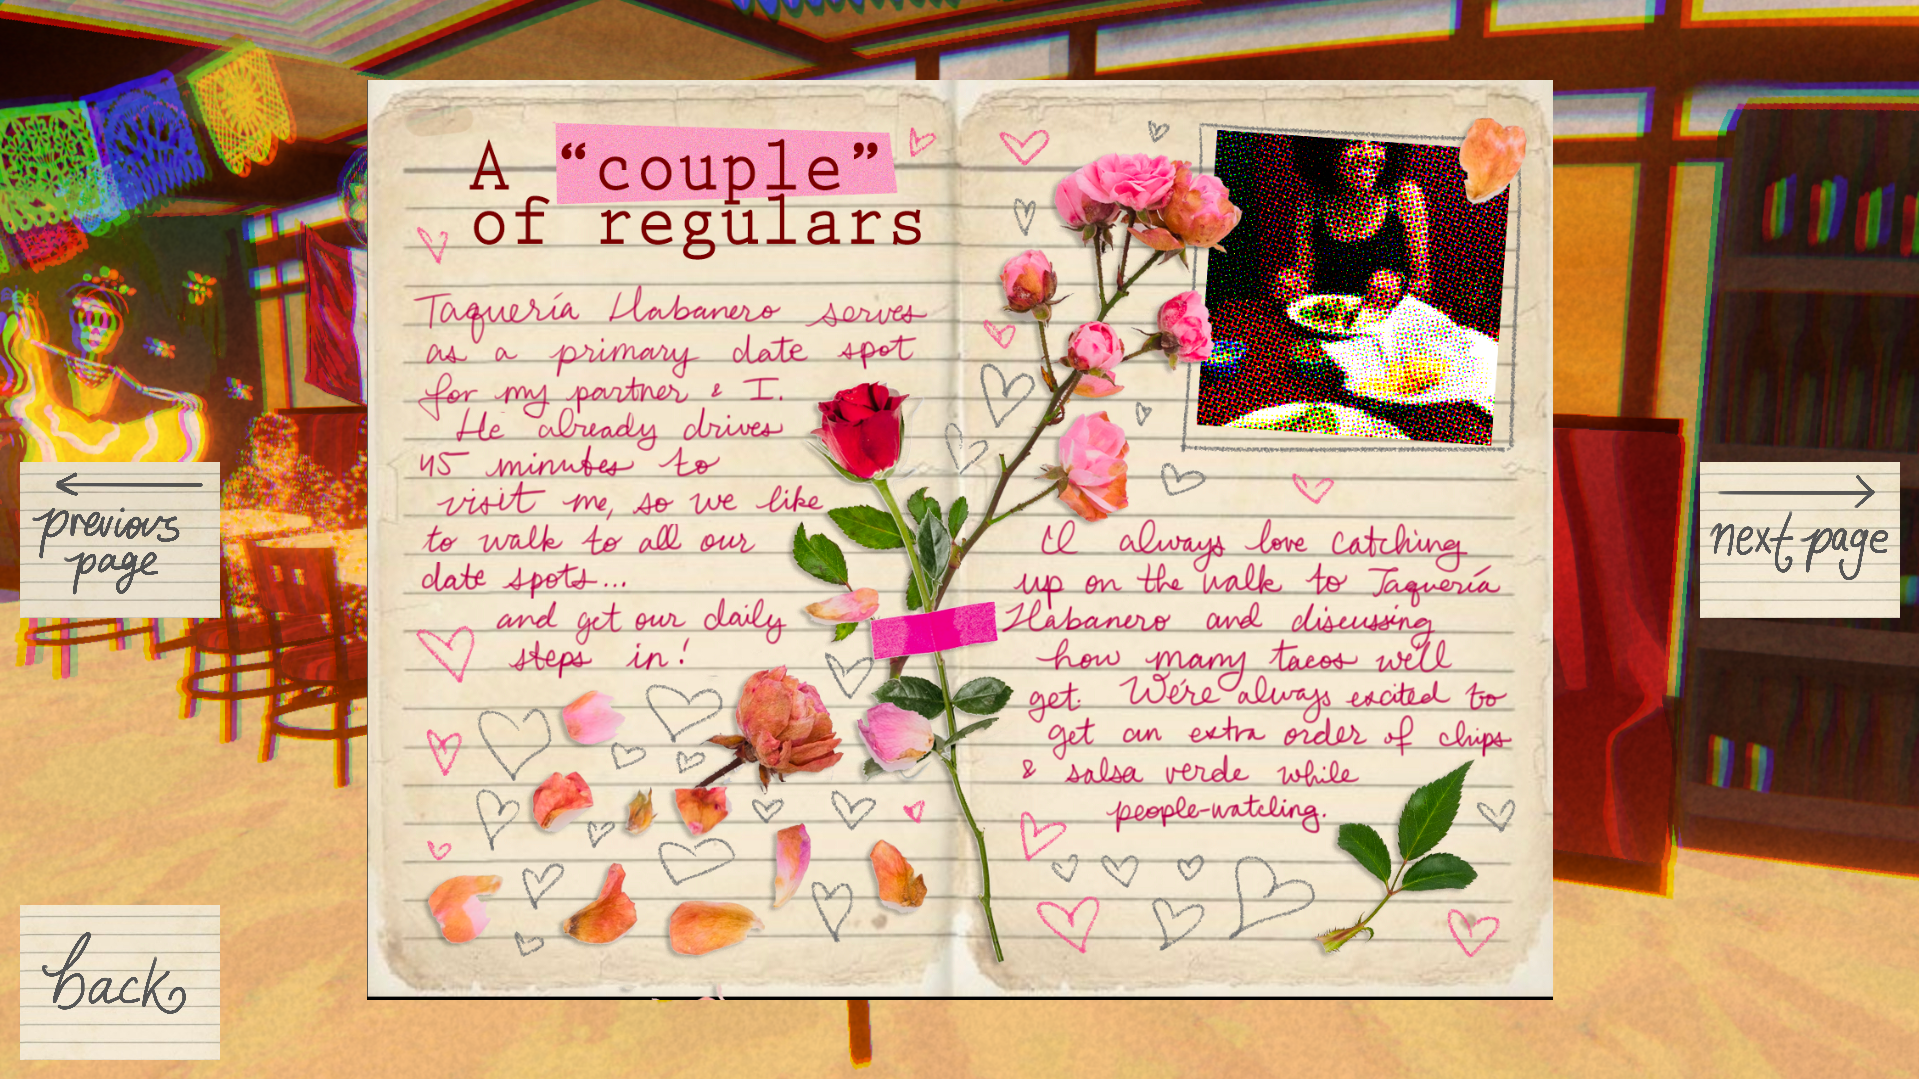 A “couple”
of regulars
Taquería Habanero serves
as a primary date spot
for my partner & I.
He already drives
45 minutes to
visit me, so we like
to walk to all our
date spots...
and get our daily
steps in!
I'll always love catching
up on the walk to Taquería
Habanero and discussing
how many tacos we'll
get. We're always excited to
get an extra order of chips
& salsa verde while
people-watching.
previous
page
next page
back